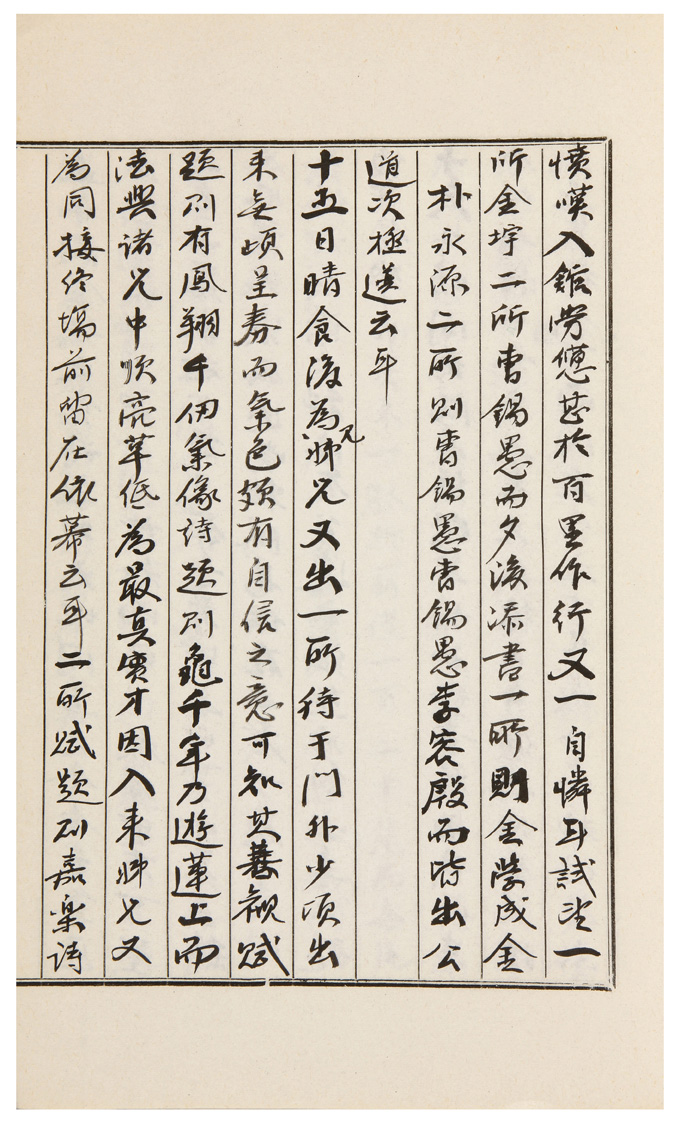 憤嘆入館勞憊甚於百里作行又一自憐耳試望一
所金垶二所曺錫愚而夕後添書一所則金學成金
朴永源二所則曺錫愚曺錫愚李容殷而皆出公
道次極選云耳
十五日晴食後為姊兄又出一所待于門外少頃出
兄
來無頉呈券而氣色頗有自信之意可知其善觀賦
題則有鳳翔千仞氣像詩題則龜千年乃遊蓮上而
法興諸兄中順亮草低為最真實才因入來姊兄又
為同接終場前留在依幕云耳二所賦題則嘉樂詩